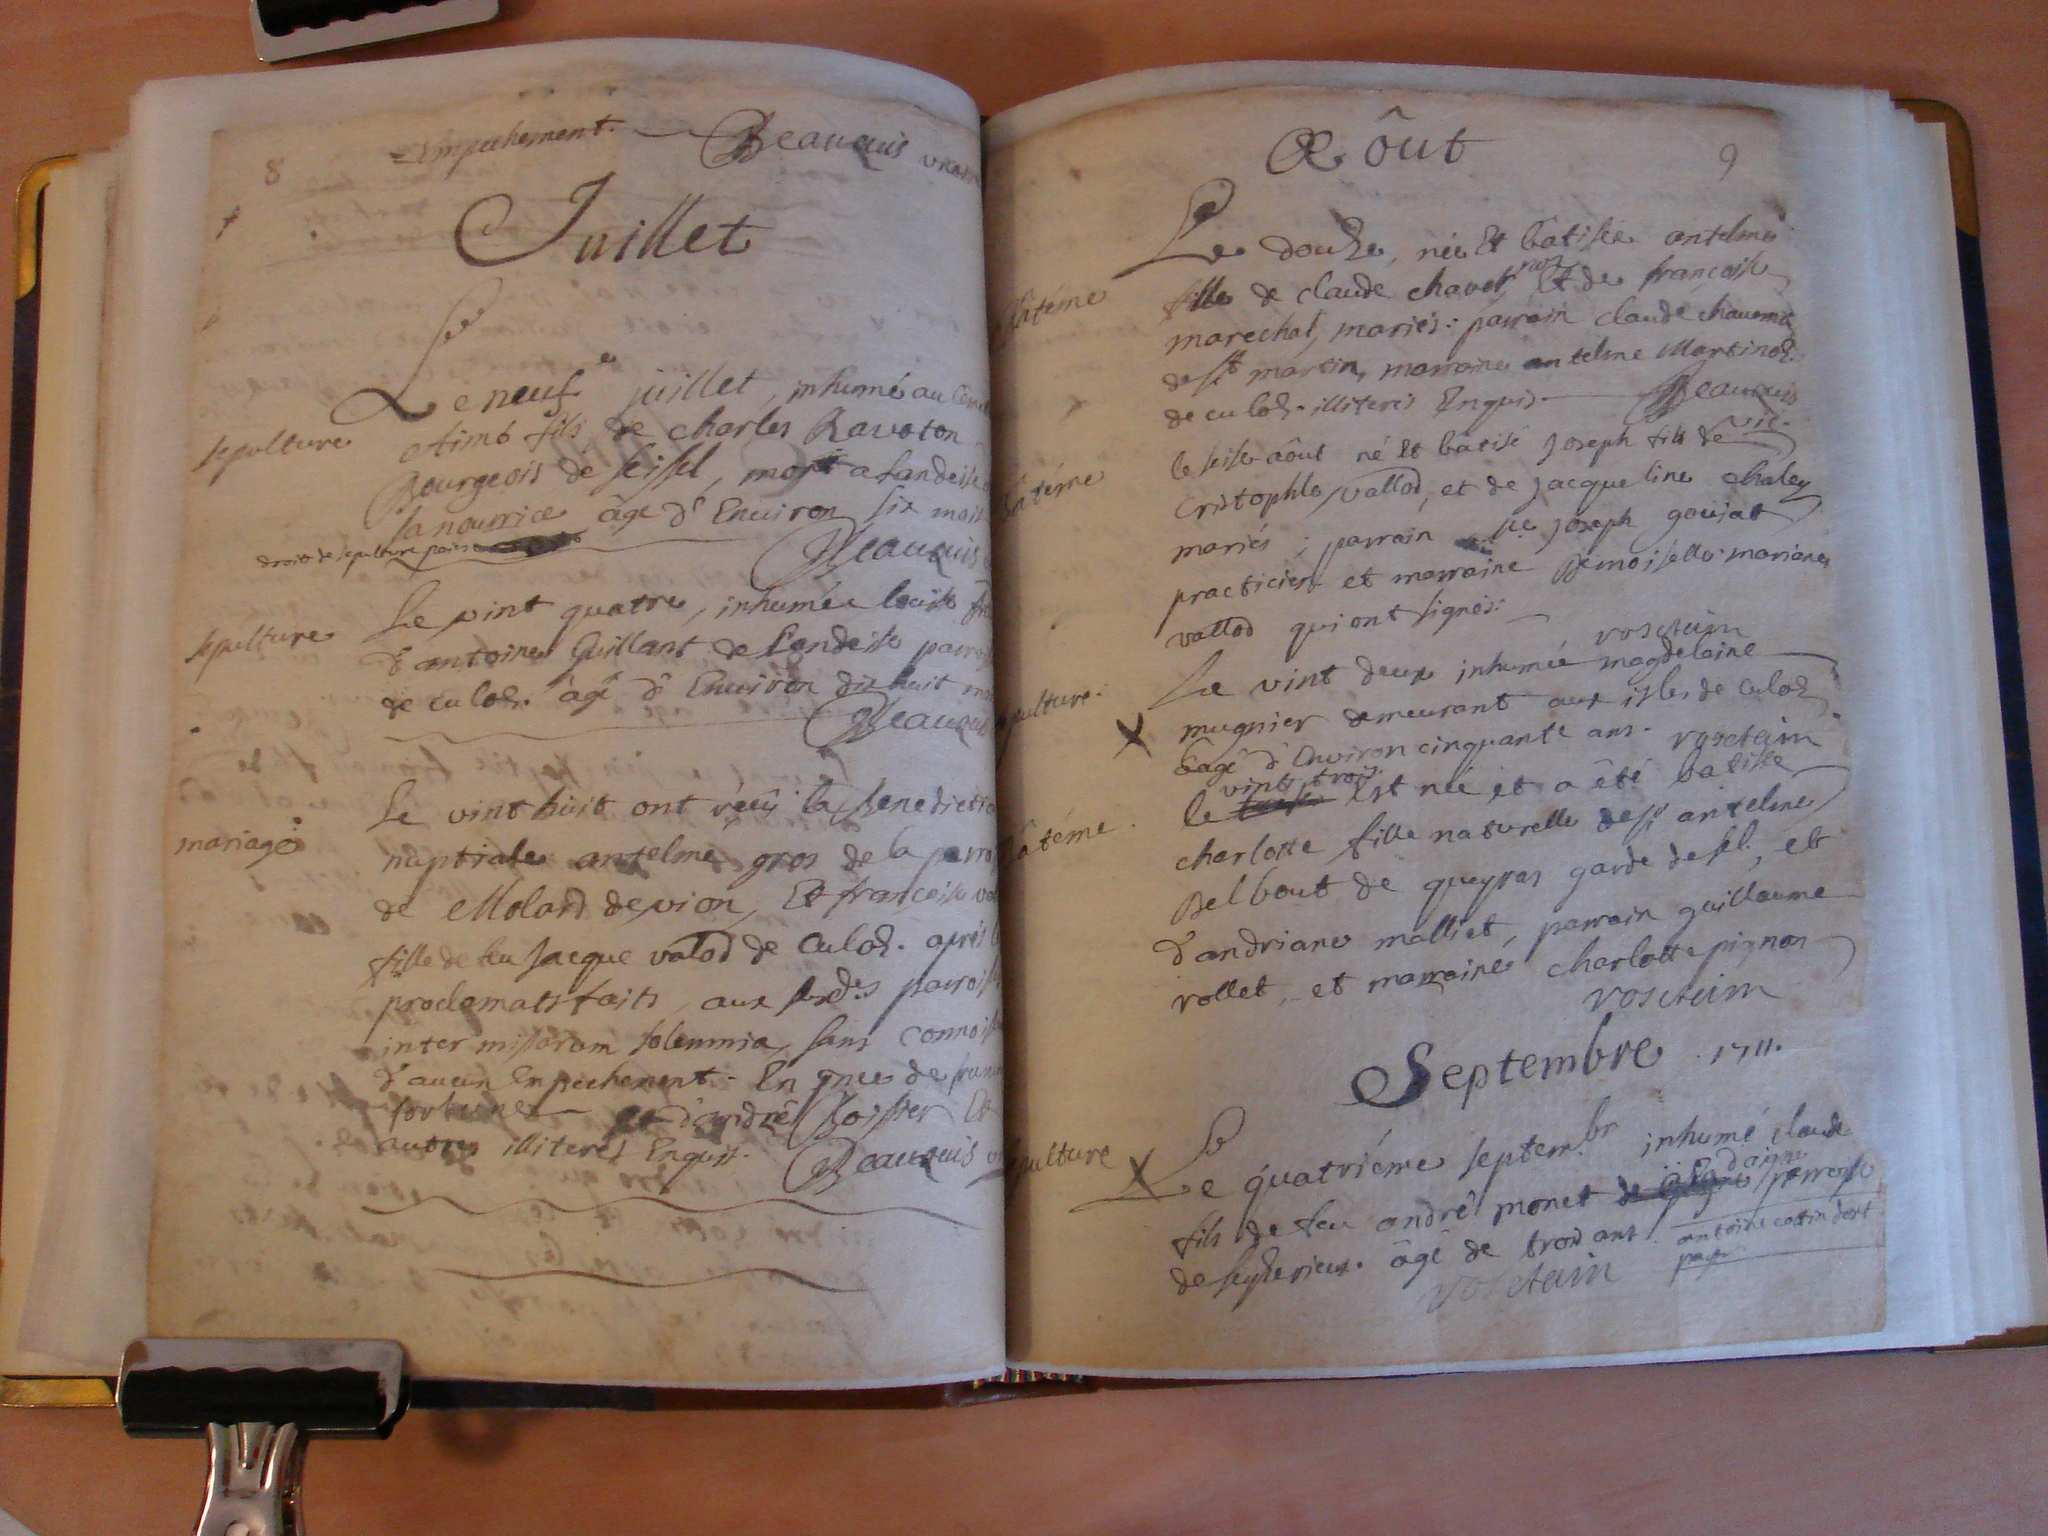 8
Empechement. Beauquis vicaire
Juillet
Le neuf.e juillet, inhumé au
fils de charles Ravoton
Bourgeois de seissel, mort a Landeise
sa nourrice âgé d'Environ six mois
droit de sepulture
Beauquis
sepulture
Le vint quatre, inhumée louise
d'antoine Guillant de Landeise
de culoz. âgé d'Environ dix huit
Beauquis
sepulture
Le vint huit ont reçû la Benediction
nuptiale antelme gros de la
de Molard de vion, Et françoise
fille de feu jacque valod de Culoz. aprés
proclamats faits, aux
inter missarum solemnia, sans
d'aucun Enpechement. En pnce de
fortune et d'andré Boissier Et
autres illiterés Enquis. Beauquis
mariage
Aôut
9
Le douze, née Et batisée antelme
fille de claude chavet Et de françoise
marechal, mariés: parrain claude
de st martin, marraine antelme Martinod
de culoz. illiterés Enquis. Beauquis
vic.
Bâtéme
le seise aôut né Et bâtisé Joseph fils de
Cristophle vallod, et de jacqueline chaley
mariés; parrain Joseph goujat
practicien et marraine Demoiselle mariane
vallod qui ont signés.
vosctain
Bâtéme
Le vint deux inhumée magdelaine
mugnier demeurant aux isles de culoz
âgé d'Environ cinquante ans. vosctain
sepulture.
X
vint trois
le est née et a été batisée
charlotte fille naturelle de sr antelme
Belbout de queyras garde de sel, et
d'andriane malliet, parrain guillaume
rollet, et marraine charlotte pignon
vosctain
Bâtéme
Septembre 1711.
Le quatriéme septembr inhumé claude
fils de feu andré monet de parroisse
de seyserieux. âgé de trois ans. antoine cottin doit
vosctain payer
sepulture
X